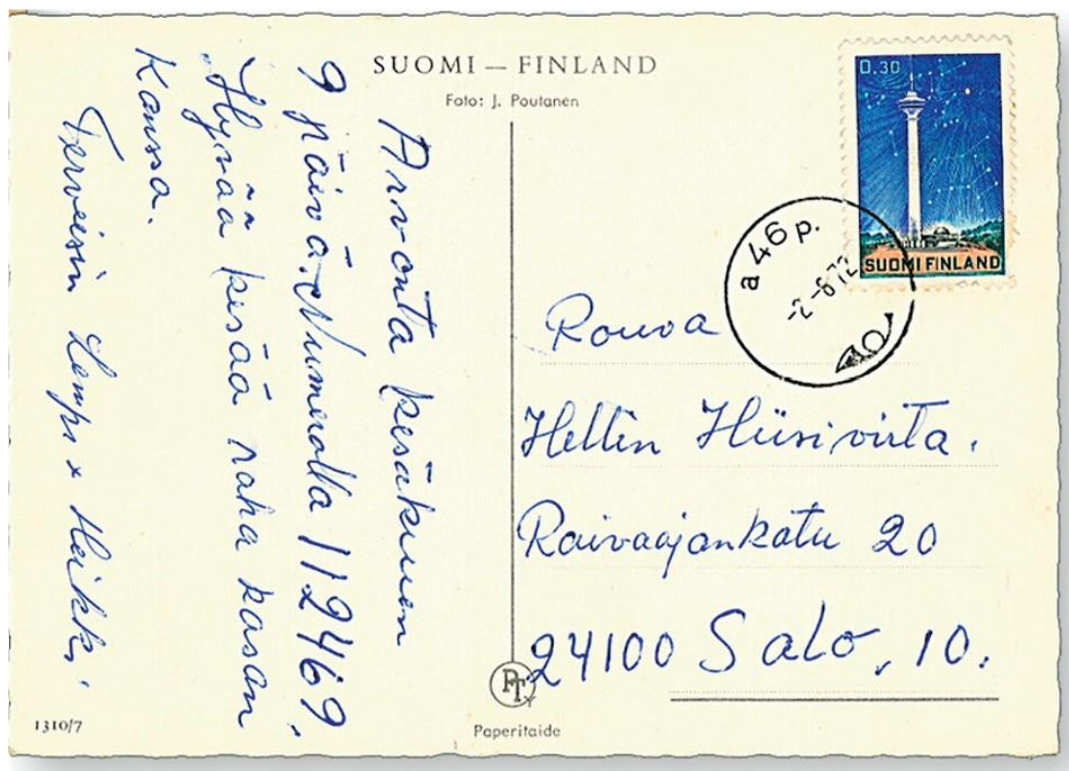 SUOMI — FINLAND
Foto: J. Poutanen
Arvonta kesäkuun
9 päivä. Numerolla 112469.
Hyvää kesää raha kasan
Kanssa.
Terveisin Lempi x Heikki.
0.30
SUOMI FINLAND
a 46 p.
-2-6.72
Rouva
Hellin Hiisivirta.
Raivaajankatu 20
24100 Salo, 10.
PT
Y
Paperitaide
1310/7